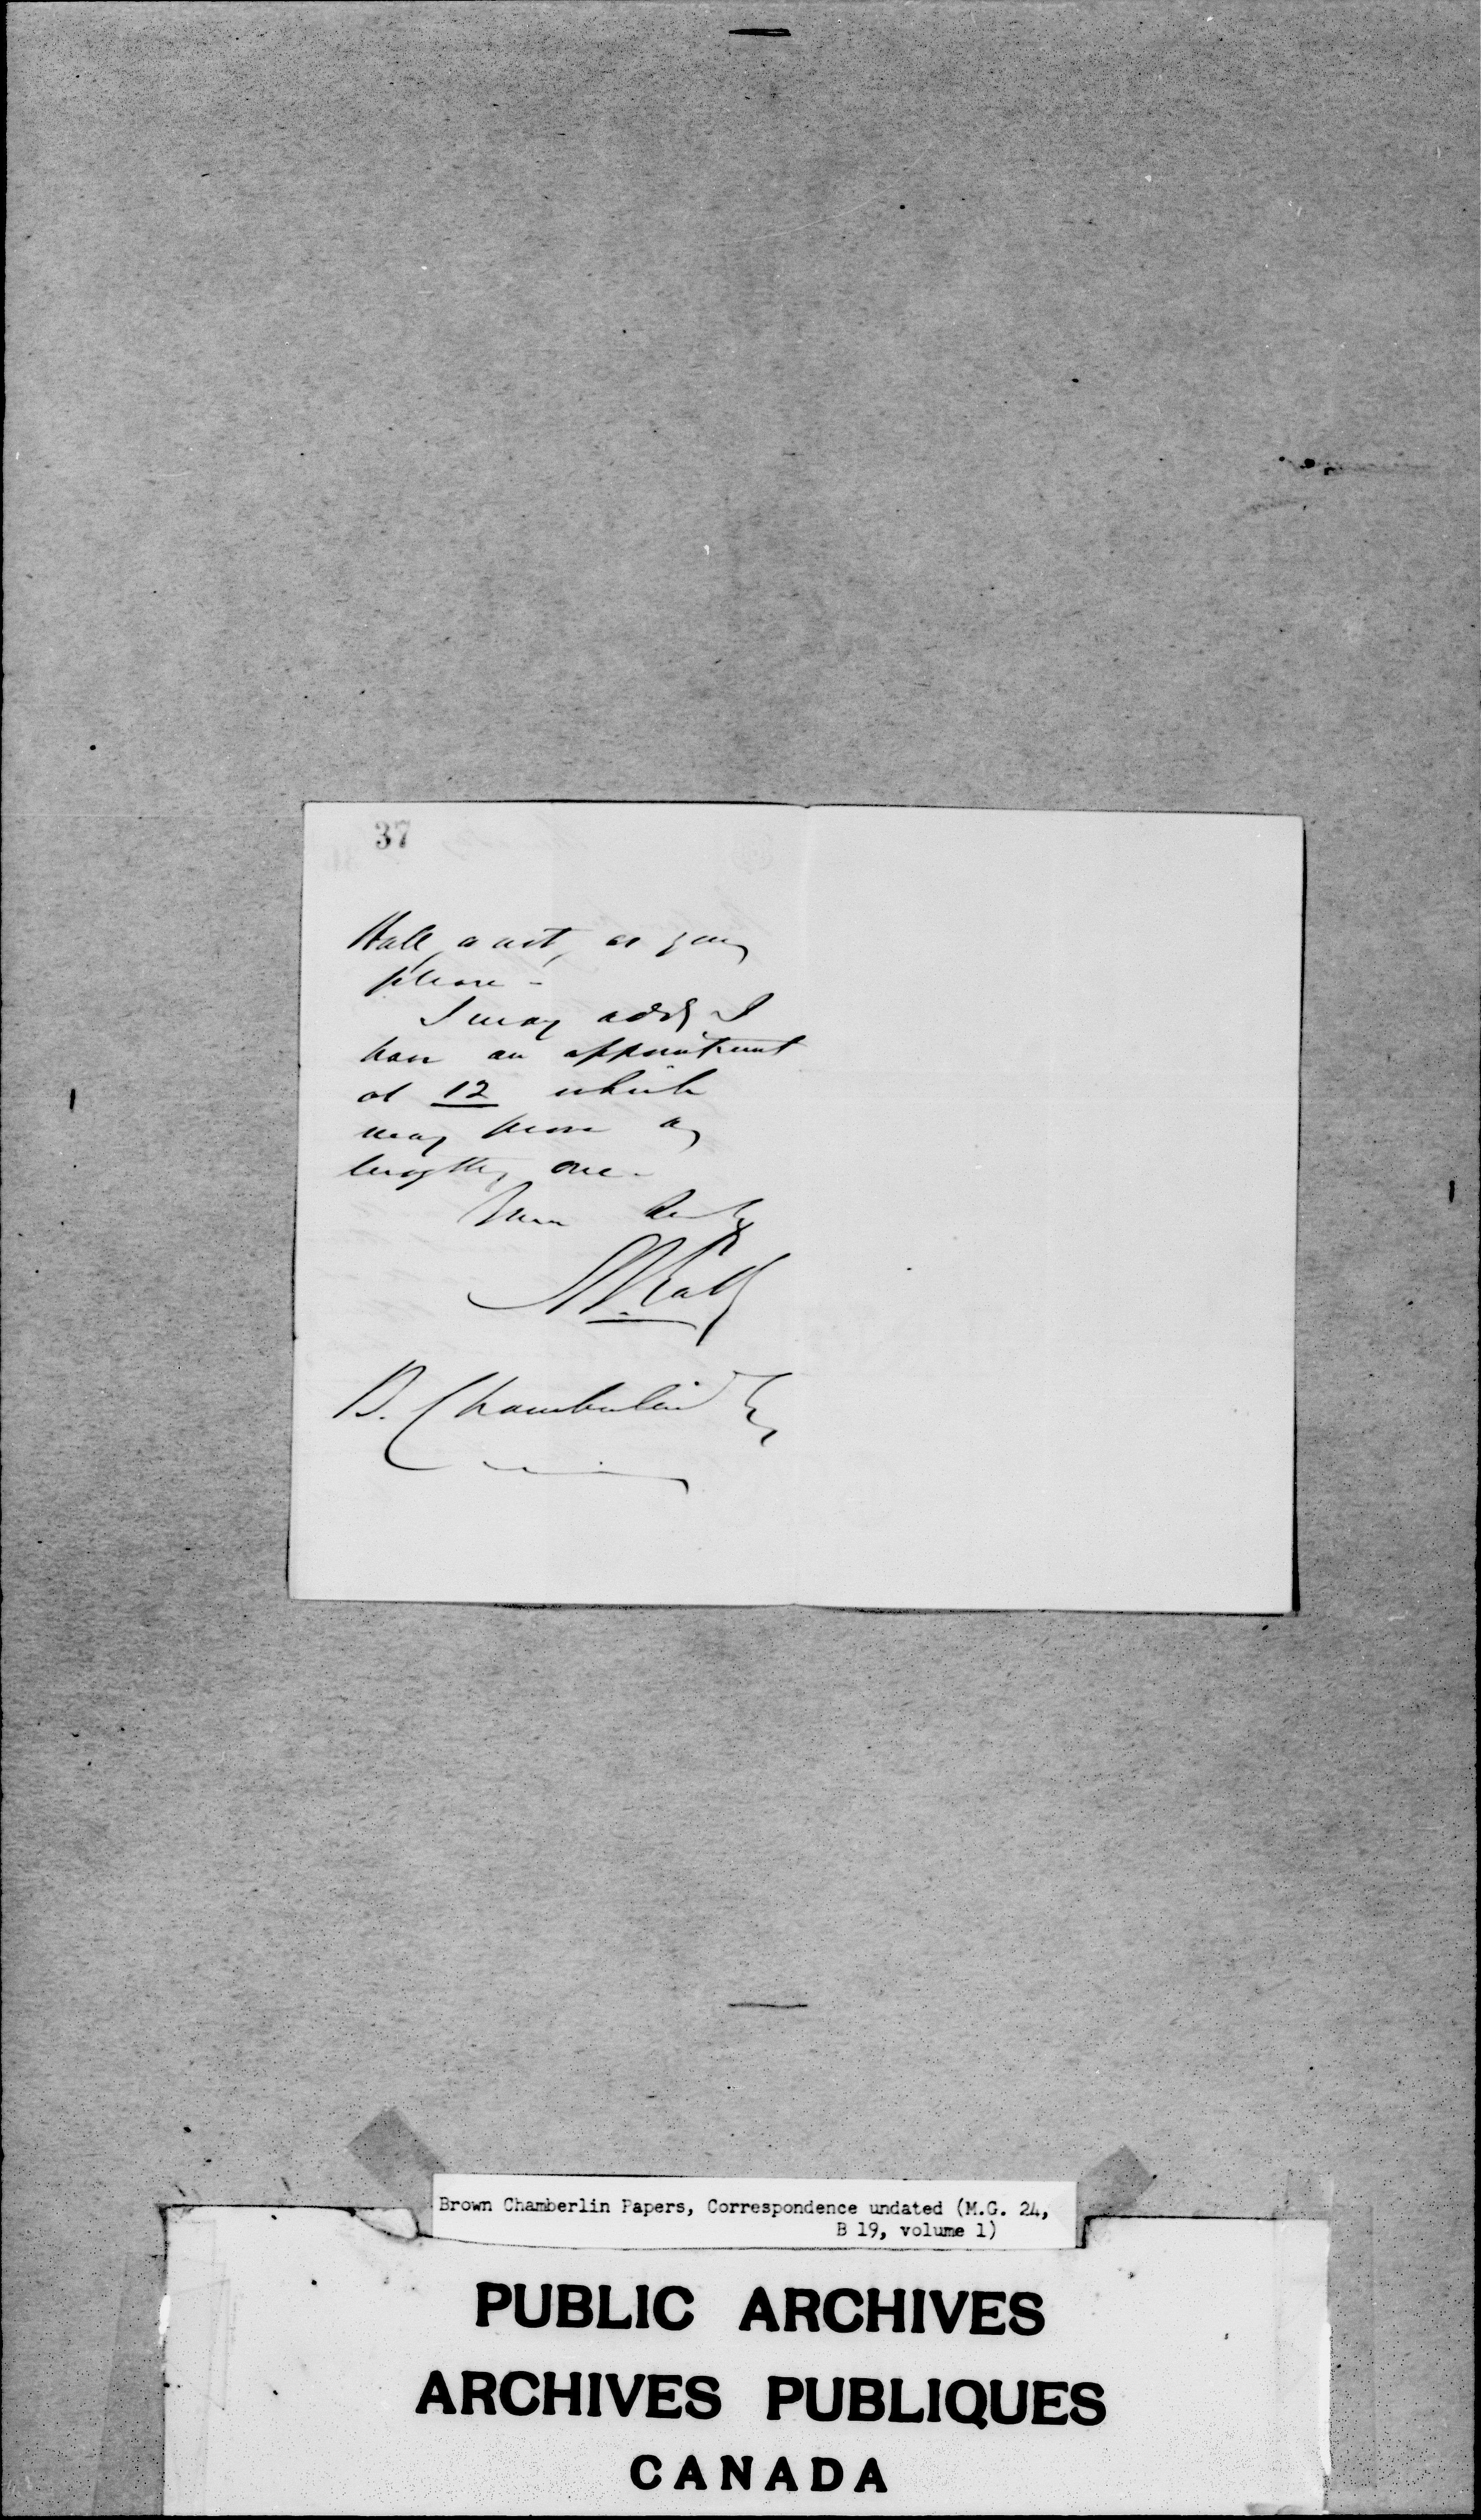 37
Hall, or not, as you
please -
I may add, I
have an appointment
at 12 which
may prove a
lengthy one -
Yours truly
B. Chamberlin Esq
Brown Chamberlin Papers, Correspondence undated (M.G. 24,
B 19, volume 1)
PUBLIC ARCHIVES
ARCHIVES PUBLIQUES
CANADA